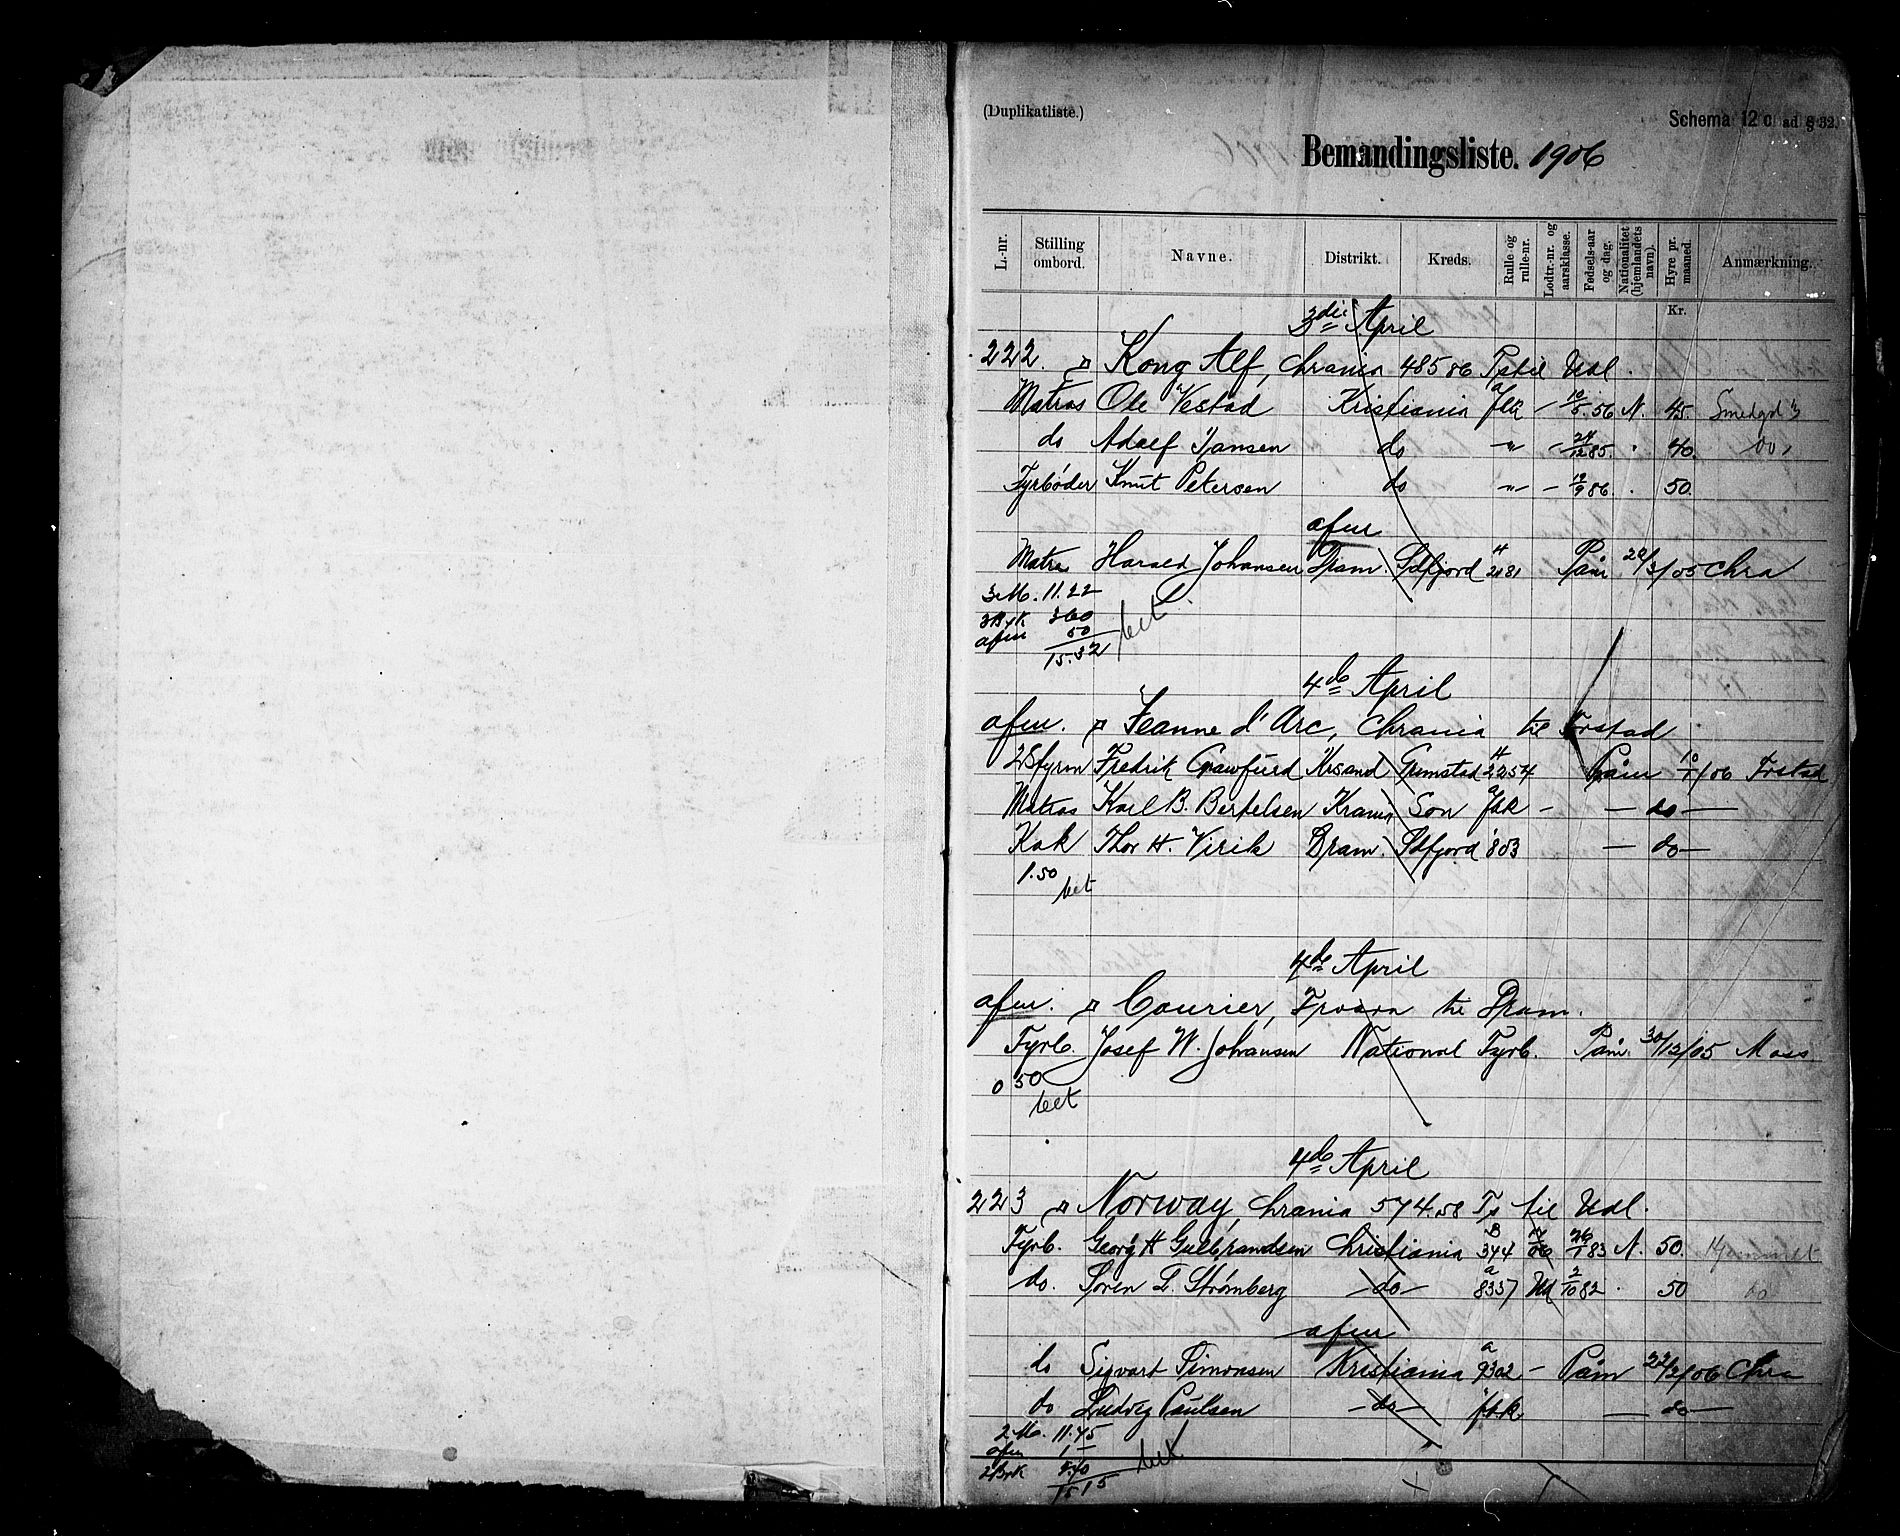 (Duplikatliste.)
Schema 12 c ad § 32.
Bemandingsliste. 1906
L.-nr. Stilling ombord. Navne. Distrikt. Kreds. Rulle og rulle-nr. Lodtr.-nr. og aarsklasse. Fødsels-aar og dag. Nationalitet (hjemlandets navn). Hyre pr. maaned. Anmærkning.
Kr.
3die April
222. Kong Alf, Chrania 485 06 til Udl.
Matros Ole Vestad Kristiania fbk - 10/5 56 N. 45. Smedgd 3
do Adolf Jansen do " - 24/12 85. 40. do,
Fyrbøder Knut Petersen do " - 19/9 86. 50.
afm
Matrs Harald Johansen Dram. Sdfjord 2181 Påm 20/3/05 Chra
3 M. 11.22
3 Brk 360
afm 50
15.32 bet
4de April
afm. Jeanne d'Arc, Chrania til Frstad
2Styrm Fredrik Crawfurd Krsand Grimstad 2254 Påm 10/1/06 Frstad
Matros Karl B. Bertelsen Krania Son fbk - — do —
Kok Thor H. Virik Dram. Sdfjord 803 — do —
1.50 bet
4de April
afm. Courier, til Dram.
Fyrb. Josef W. Johansen National Fyrb. Påm 30/12/05 Moss
0 50
bet
4de April
223 Norway, Chrania 574.58 til Udl.
Fyrb. Georg H Gulbrandsen Christiania 344 26/1 83 N. 50. Hjemmet
do. Søren T. Strømberg — do — a 8337 Ud 2/10 82 50 do
afm
do Sigvart Simonsen Kristiania a 9302 - Påm 22/2/06 Chra
do Ludvig Paulsen — do — fbk — do —
2 M. 11.45
afm 1 -
2 Brk
15 15 bet